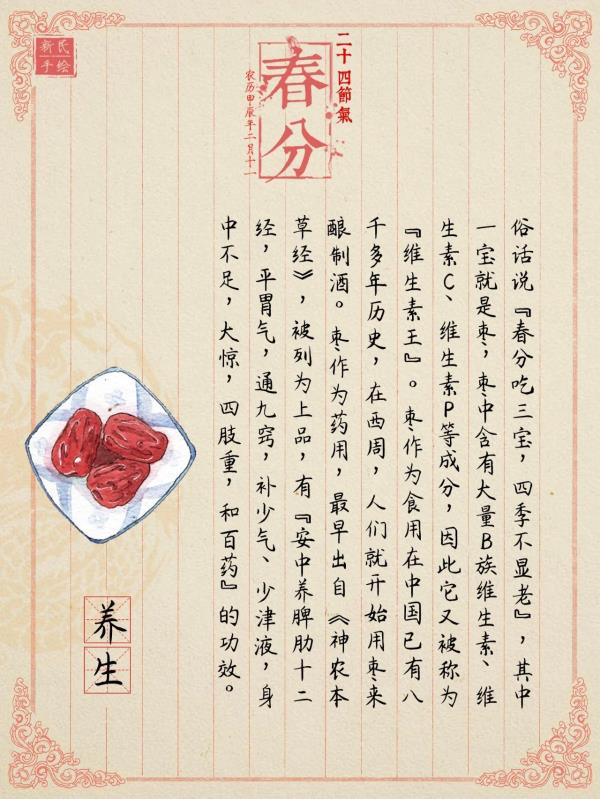 新氏
手绘
二十四節氣
春分
农历甲辰年二月十一
俗话说『春分吃三宝，四季不显老』，其中
一宝就是枣，枣中含有大量B族维生素、维
生素C、维生素P等成分，因此它又被称为
『维生素王』。枣作为食用在中国已有八
千多年历史，在西周，人们就开始用枣来
酿制酒。枣作为药用，最早出自《神农本
草经》，被列为上品，有『安中养脾肋十二
经，平胃气，通九窍，补少气、少津液，身
中不足，大惊，四肢重，和百药』的功效。
养生